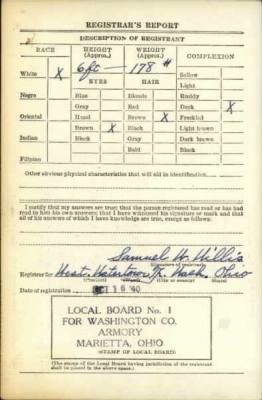 REGISTRAR'S REPORT
DESCRIPTION OF REGISTRANT
RACE HEIGHT (Approx.) WEIGHT (Approx.) COMPLEXION
White X 6ft— 178# Sallow
EYES HAIR Light
Negro Blue Blonde Ruddy
Gray Red Dark X
Oriental Hazel Brown X Freckled
Brown X Black Light brown
Indian Black Gray Dark brown
Bald Black
Filipino
Other obvious physical characteristics that will aid in identification
I certify that my answers are true; that the person registered has read or has had read to him his own answers; that I have witnessed his signature or mark and that all of his answers of which I have knowledge are true, except as follows:
Samuel W. Willis
(Signature of registrar)
Registrar for West. Watertown Tp. Wash. Ohio
(City or county) (State)
Date of registration OCT 16 '40
LOCAL BOARD No. 1
FOR WASHINGTON CO.
ARMORY
MARIETTA, OHIO
(STAMP OF LOCAL BOARD)
(The stamp of the Local Board having jurisdiction of the registrant
shall be placed in the above space.)